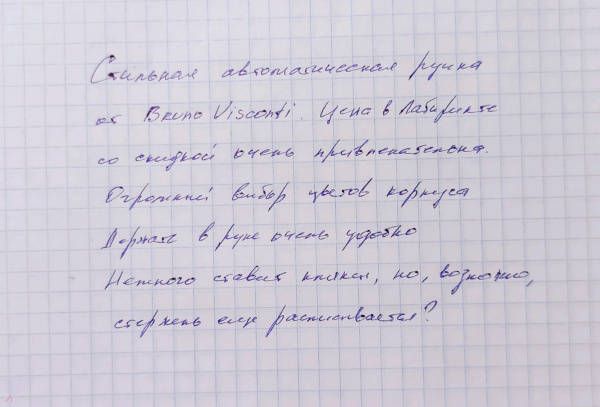 Стильная автоматическая ручка
от Bruno Visconti. Цена в Лабиринте
со скидкой очень привлекательна.
Огромный выбор цветов корпуса
Держать в руке очень удобно
Немного ставит кляксы, но, возможно,
стержень еще расписывается?